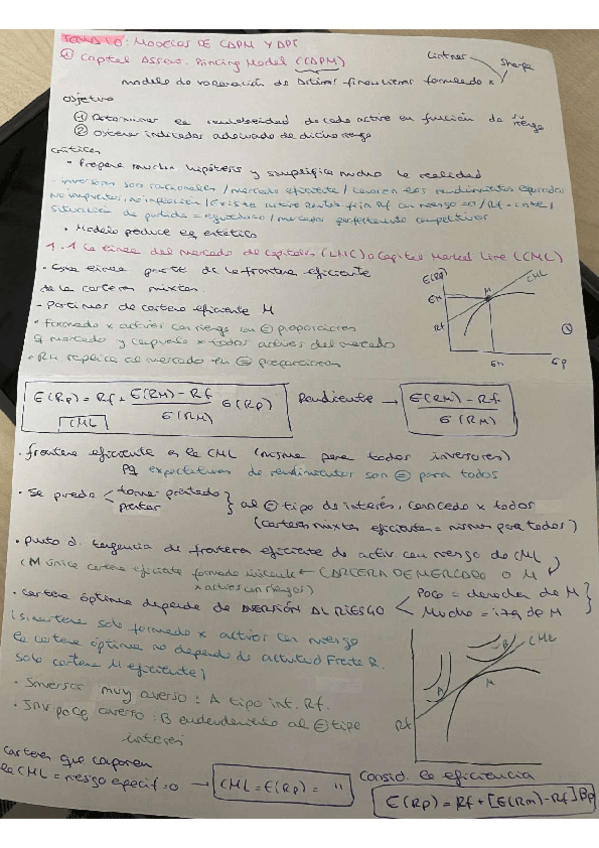 TEMA 10: MODELOS DE CAPM Y APT
① Capital Asset Pricing Model (CAPM)
Lintner
Sharpe
modelo de valoración de activos financieros formulado x
Objetivo
① Determinar la rentabilidad de cada activo en función de su riesgo
② Obtener indicador adecuado de dicho riesgo
Críticas
• Propone muchas hipótesis y simplifica mucho la realidad
inversores son racionales / mercado eficiente / conocen los rendimientos esperados
No impuestos, no inflación / Existe activo Renta fija Rf con riesgo = 0 / Rf = cnte /
situación de partida = equilibrio / mercados perfectamente competitivos
• Modelo produce es estático
1.1 La línea del mercado de capitales (LMC) o Capital Market Line (CML)
• Esta línea parte de la frontera eficiente
de las carteras mixtas.
- Partimos de cartera eficiente M
• Formada x activos con riesgo en = proporción
q mercado y compuesta x todos activos del mercado
• RM replica al mercado en = proporción
E(Rp)
CML
EM
M
Rf
σm
σp
E(Rp) = Rf + E(RM) - Rf / σ(RM) σ(Rp)
CML
Pendiente → E(RM) - Rf / σ(RM)
• frontera eficiente es la CML (misma para todos inversores)
pq expectativas de rendimientos son = para todos
• Se puede < tomar prestado / prestar } al = tipo de interés, conocido x todos
(carteras mixtas eficientes = mismas para todos)
• punto d. tangencia de frontera eficiente de activ. con riesgo de CML
(M única cartera eficiente formada ← CARTERA DE MERCADO O M
x activos con riesgos)
• Cartera óptima depende de AVERSIÓN AL RIESGO < Poca = derecha de M
Mucho = izq de M
(si cartera solo formada x activos con riesgo
la cartera óptima no depende de actitud frente R.
solo cartera M eficiente)
• Inversor muy averso: A tipo int. Rf.
• Inv poco averso: B endeudamiento al = tipo
interés
B
CML
A
M
Rf
Carteras que componen
la CML = riesgo específ = 0 → CML = E(Rp) = "
Consid. la eficiencia
E(Rp) = Rf + [E(Rm) - Rf] Bp